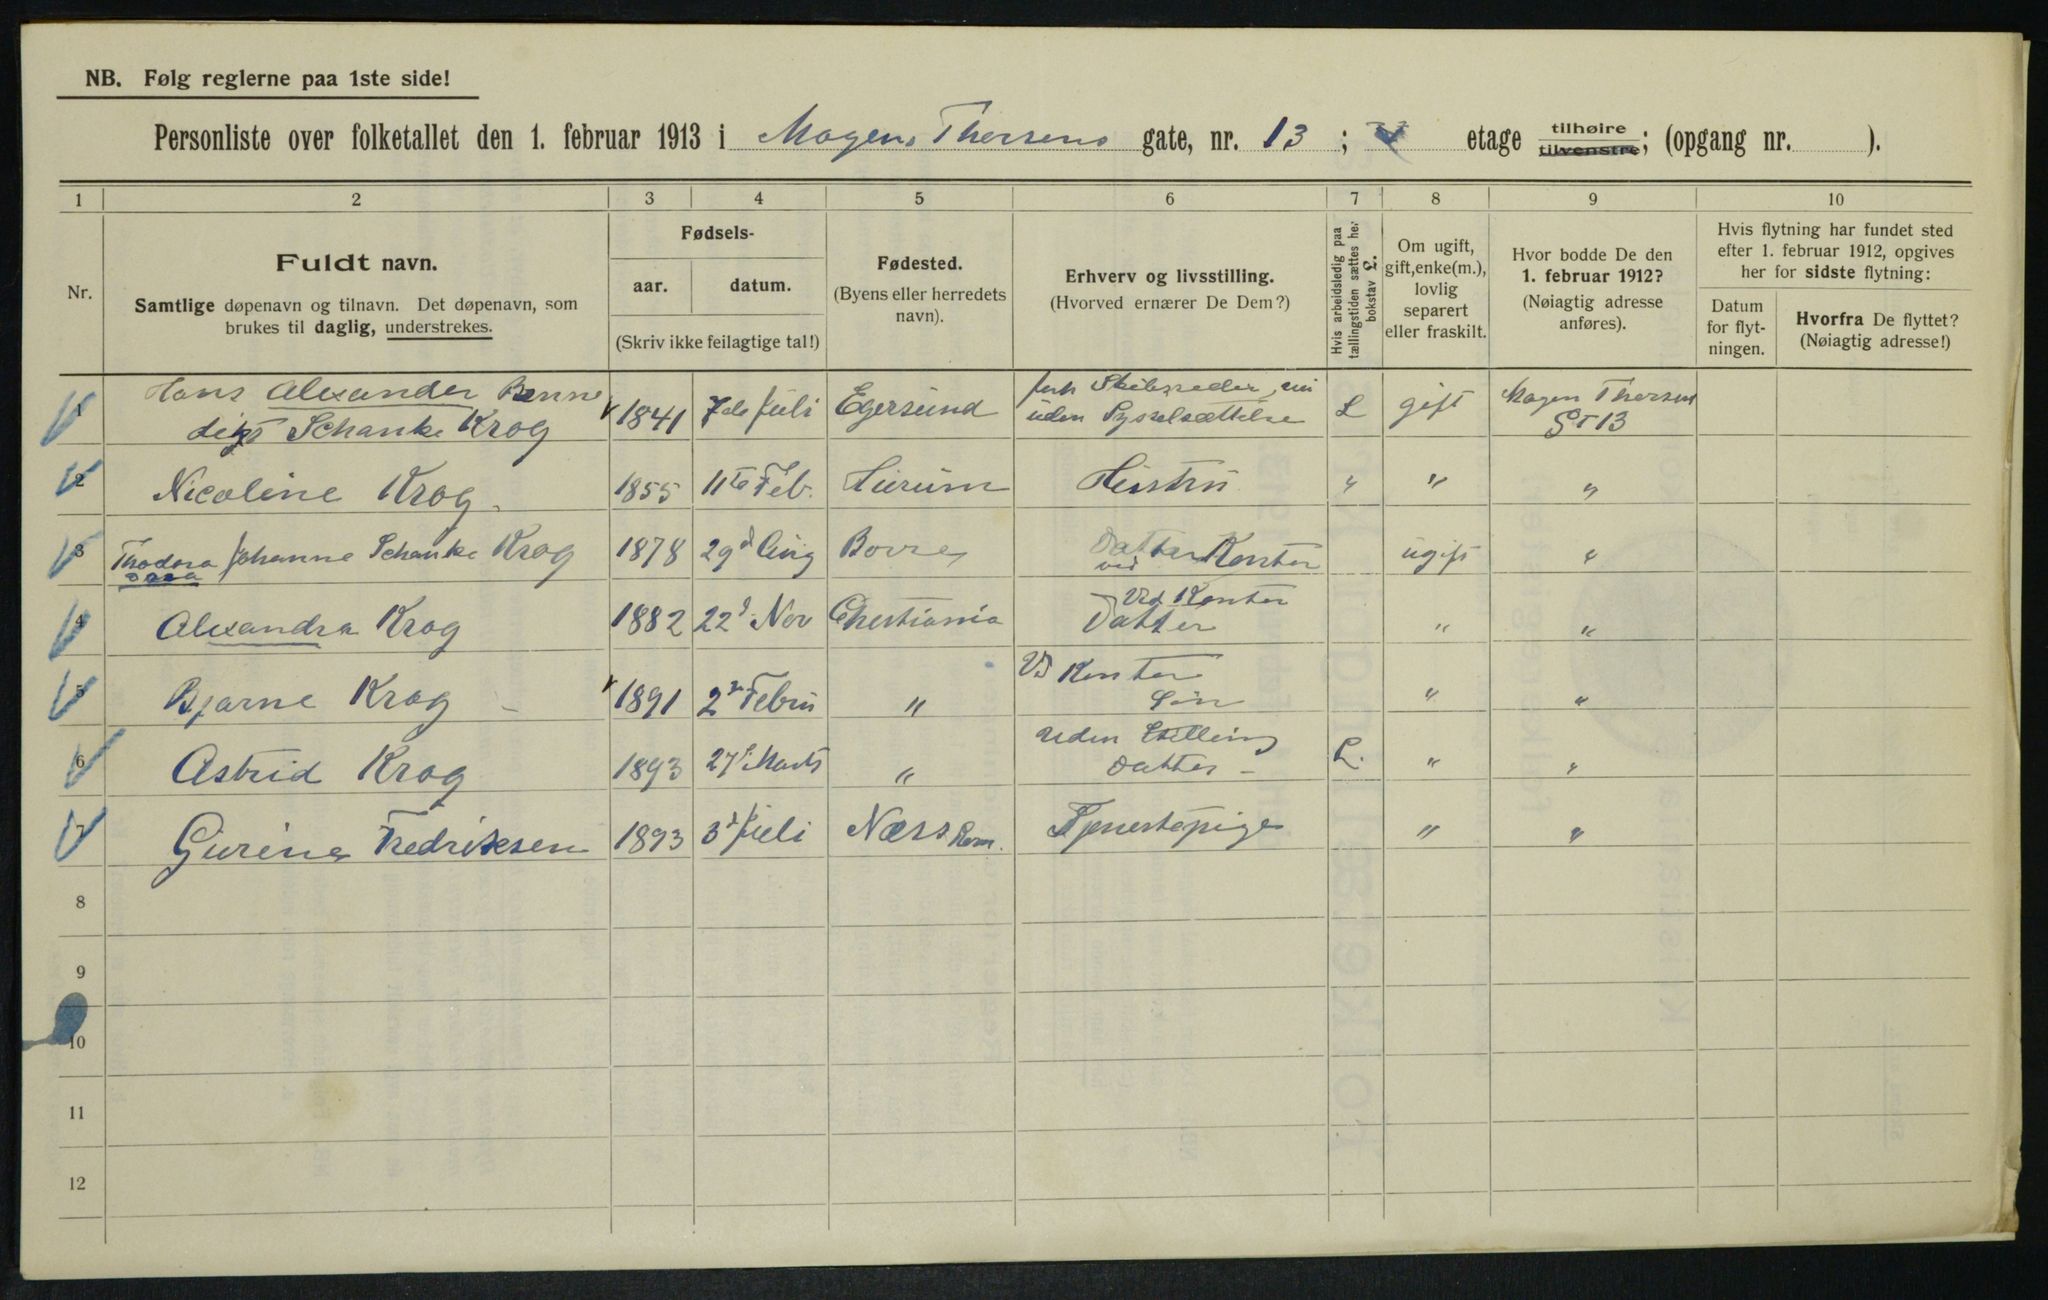 NB. Følg reglerne paa 1ste side!
Personliste over folketallet den 1. februar 1913 i Mogens Thorsens gate, nr. 13 ; etage tilhøire tilvenstre; (opgang nr. ).
1 2 3 4 5 6 7 8 9 10
Nr.
Fuldt navn.
Samtlige døpenavn og tilnavn. Det døpenavn, som
brukes til daglig, understrekes.
Fødsels-
aar. datum.
(Skriv ikke feilagtige tal!)
Fødested.
(Byens eller herredets
navn).
Erhverv og livsstilling.
(Hvorved ernærer De Dem?)
Hvis arbeidsledig paa
tællingstiden sættes her
bokstav L.
Om ugift,
gift, enke(m.),
lovlig
separert
eller fraskilt.
Hvor bodde De den
1. februar 1912?
(Nøiagtig adresse
anføres).
Hvis flytning har fundet sted
efter 1. februar 1912, opgives
her for sidste flytning:
Datum
for flyt-
ningen.
Hvorfra De flyttet?
(Nøiagtig adresse!)
1 Hans Alexander Benne
digt Schanke Krog 1841 7de Juli Egersund forh Skibsreder, nu
uden Sysselsættelse L gift Mogen Thorsens
GT 13
2 Nicoline Krog 1855 11te Feb. Hurum Hustru " " "
3 Thodora Johanne Schanke Krog 1878 29d Aug Borre Datter
ved Kontor ugift "
4 Alexandra Krog 1882 22d Nov Christiania Ved Kontor
Datter " "
5 Bjarne Krog 1891 2n Febru " Ved Kontor
Søn " "
6 Astrid Krog 1893 27d Marts " uden Stilling
Datter L. " "
7 Gurine Fredriksen 1893 3d Juli Næss Rom. Tjenestepige " "
8
9
10
11
12